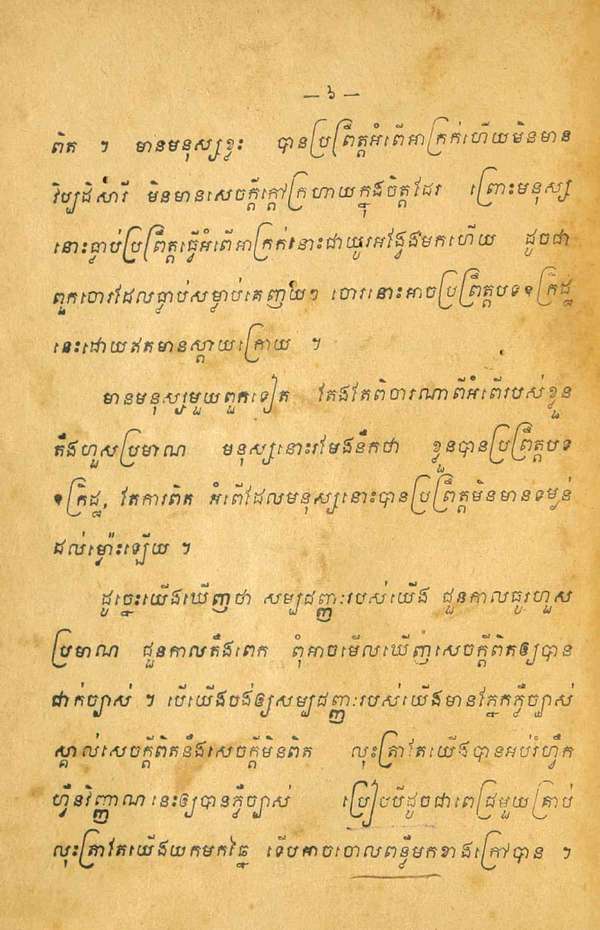 — ៦ —
ពិត ។ មានមនុស្សខ្លះ បានប្រព្រឹត្តអំពើអាក្រក់ហើយមិនមាន
វិប្បដិសារី មិនមានសេចក្ដីក្ដៅក្រហាយក្នុងចិត្តដែរ ព្រោះមនុស្ស
នោះធ្លាប់ប្រព្រឹត្តធ្វើអំពើអាក្រក់នោះជាយូរអង្វែងមកហើយ ដូចជា
ពួកចោរដែលធ្លាប់សម្លាប់គេញយៗ ចោរនោះអាចប្រព្រឹត្តបទឧក្រិដ្ឋ
នេះដោយឥតមានស្ដាយក្រោយ ។
មានមនុស្សមួយពួកទៀត តែងតែពិចារណាពីអំពើរបស់ខ្លួន
តឹងហួសប្រមាណ មនុស្សនោះរមែងនឹកថា ខ្លួនបានប្រព្រឹត្តបទ
ឧក្រិដ្ឋ, តែការពិត អំពើដែលមនុស្សនោះបានប្រព្រឹត្តមិនមានទម្ងន់
ដល់ម្ល៉ោះឡើយ ។
ដូច្នេះយើងឃើញថា សម្បជញ្ញៈរបស់យើង ជួនកាលធូរហួស
ប្រមាណ ជួនកាលតឹងពេក ពុំអាចមើលឃើញសេចក្ដីពិតឲ្យបាន
ជាក់ច្បាស់ ។ បើយើងចង់ឲ្យសម្បជញ្ញៈរបស់យើងមានភ្នែកភ្លឺច្បាស់
ស្គាល់សេចក្ដីពិតនឹងសេចក្ដីមិនពិត លុះត្រាតែយើងបានអប់រំហ្វឹក
ហ្វឺនវិញ្ញាណនេះឲ្យបានភ្លឺច្បាស់ ប្រៀបបីដូចជាពេជ្រមួយគ្រាប់
លុះត្រាតែយើងយកមកឆ្នៃ ទើបអាចចោលពន្លឺមកខាងក្រៅបាន ។